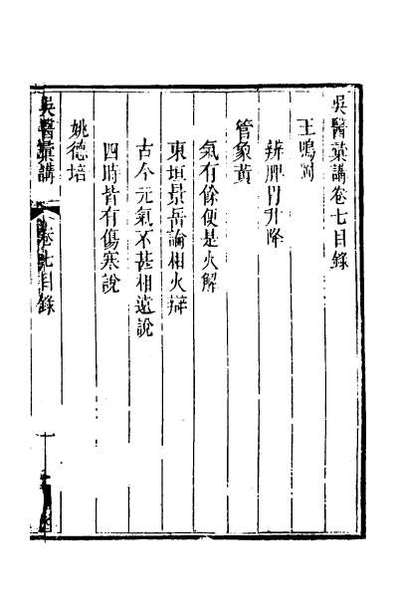 吳醫彙講卷七目錄
王鳴岡
辨脾胃升降
管象黃
氣有餘便是火解
東垣景岳論相火辯
古今元氣不甚相遠說
四時皆有傷寒說
姚德培
吳醫彙講
卷七目錄